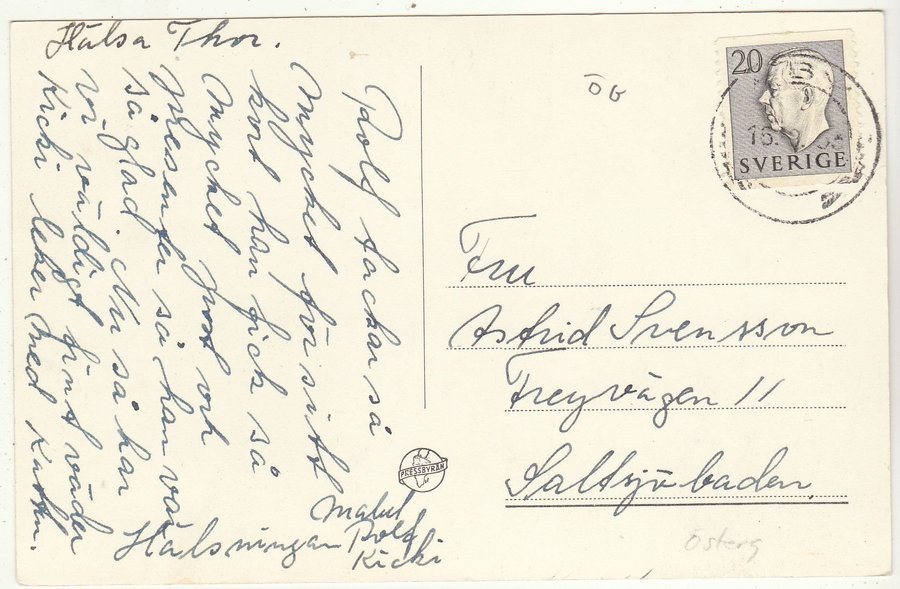 Hälsa Thor.
Rolf tackar så
mycket för sitt
kort han fick så
mycket post och
presenter så han var
så glad. Nu så har
vi väldigt fint väder
Kicki leker med katten.
Hälsningar
Rolf
Kicki
ÖG
20
SVERIGE
PRESSBYRÅN
Fru
Astrid Svensson
Freyvägen 11
Saltsjöbaden
Österg